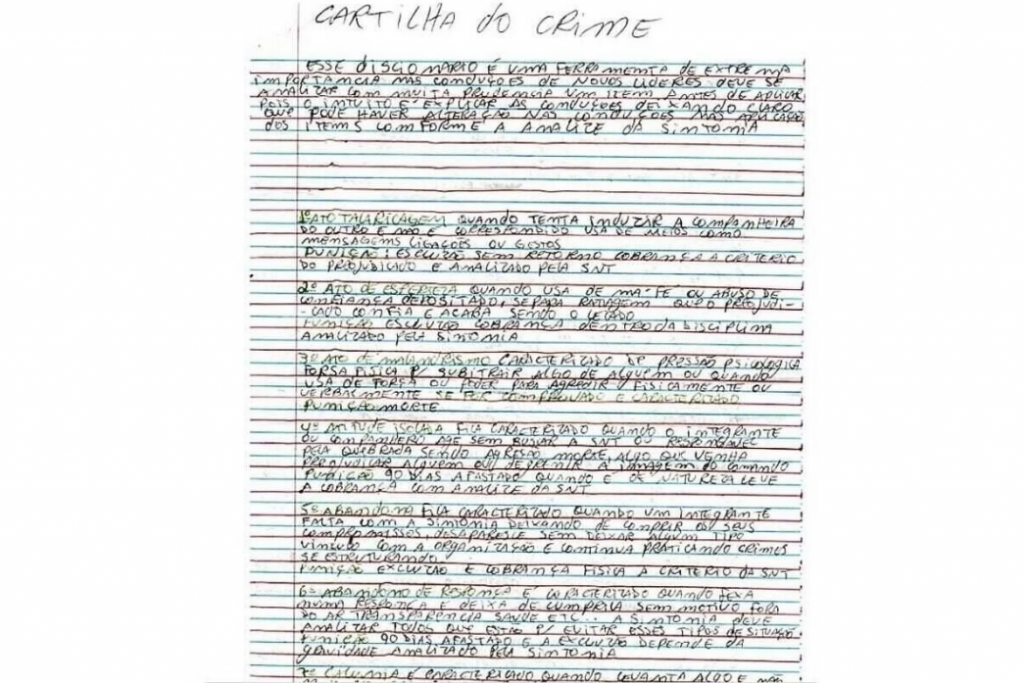 CARTILHA do CRIME
ESSE DISCIONARIO É UMA FERRAMENTA DE EXTREMA
IMPORTANCIA NAS CONDUÇÕES DE NOVOS LIDERES DEVE SE
ANALIZAR COM MUITA PRUDENCIA UM ITEM ANTES DE APLICAR
POIS O INTUITO É EXPLICAR AS CONDUÇÕES DEIXANDO CLARO
QUE PODE HAVER ALTERAÇÃO NAS CONDUÇÕES NAS APLICAÇÃO
DOS ITEMS COMFORME A ANALIZE DA SINTONIA
1º ATO TALARICAGEM QUANDO TENTA INDUZAR A COMPANHEIRA
DO OUTRO E NÃO É CORRESPONDIDO USA DE MEIOS COMO
MENSAGEMS LIGAÇÕES OU GESTOS
PUNIÇÃO: ESCLUZÃO SEM RETORNO COBRANÇA A CRITERIO
DO PREJUDICADO E ANALIZADO PELA SNT
2º ATO DE ESPERTEZA QUANDO USA DE MÁ FÉ OU ABUSO DE
COMFIANÇA DEPOSITADO, SEPARA RATIAGEM QUE O PREJUDI-
-CADO COMFIA E ACABA SENDO O LEZADO
PUNIÇÃO ESCLUZÃO COBRANÇA DENTRO DA DISCIPLINA
ANALIZADO PELA SINTOMIA
3º ATO DE MALANDRISMO CARACTERIZADO DE PRESSÃO PSICOLOGICA
FORSA FISICA P/ SUBITRAIR ALGO DE ALGUEM OU QUANDO
USA DE FORÇA OU PODER PARA AGREDIR FISICAMENTE OU
VERBALMENTE SE FOR COMPROVADO E CARACTERIZADO
PUNIÇÃO MORTE
4º ATITUDE ISOLADA FICA CARACTERIZADO QUANDO O INTEGRANTE
OU COMPANHERO AGE SEM BUSCAR A SNT OU RESPONSAVEL
PELA QUEBRADA SENDO AGRESÃO MORTE, ALGO QUE VENHA
PREJUDICAR ALGUEM OU DEPRENIR A IMAGEM DO COMANDO
PUNIÇÃO 90 DIAS AFASTADO QUANDO É DE NATUREZA LEVE
A COBRANÇA COM ANALIZE DA SNT
5º ABANDONO FICA CARACTERIZADO QUANDO UM INTEGRANTE
FALTA COM A SINTOMIA DEIXANDO DE COMPRIR OS SEUS
COMPROMISSOS, DESAPARESIE SEM DEIXAR ALGUM TIPO
VINCULO COM A ORGANIZAÇÃO E CONTINUA PRATICANDO CRIMES
SE ESTRUTURANDO
PUNIÇÃO EXCLUZÃO E COBRANÇA FISICA A CRITERIO DA SNT
6º ABANDONO DE RESPONÇA É CARACTERIZADO QUANDO
NUMA RESPONÇA E DEIXA DE CUMPRILA SEM MOTIVO FORA
DO AR TRANSPARENCIA SAUDE ETC.. A SINTOMIA DEVE
ANALIZAR TODOS QUE ESTÃO P/ EVITAR ESSES TIPOS DE SITUAÇÃO
PUNIÇÃO 90 DIAS AFASTADO E A EXCLUZÃO DEPENDE DA
GRAVIDADE ANALIZADO PELA SINTOMIA
7º CALUNIA É CARACTERIZADO QUANDO LEVANTA ALGO E NÃO